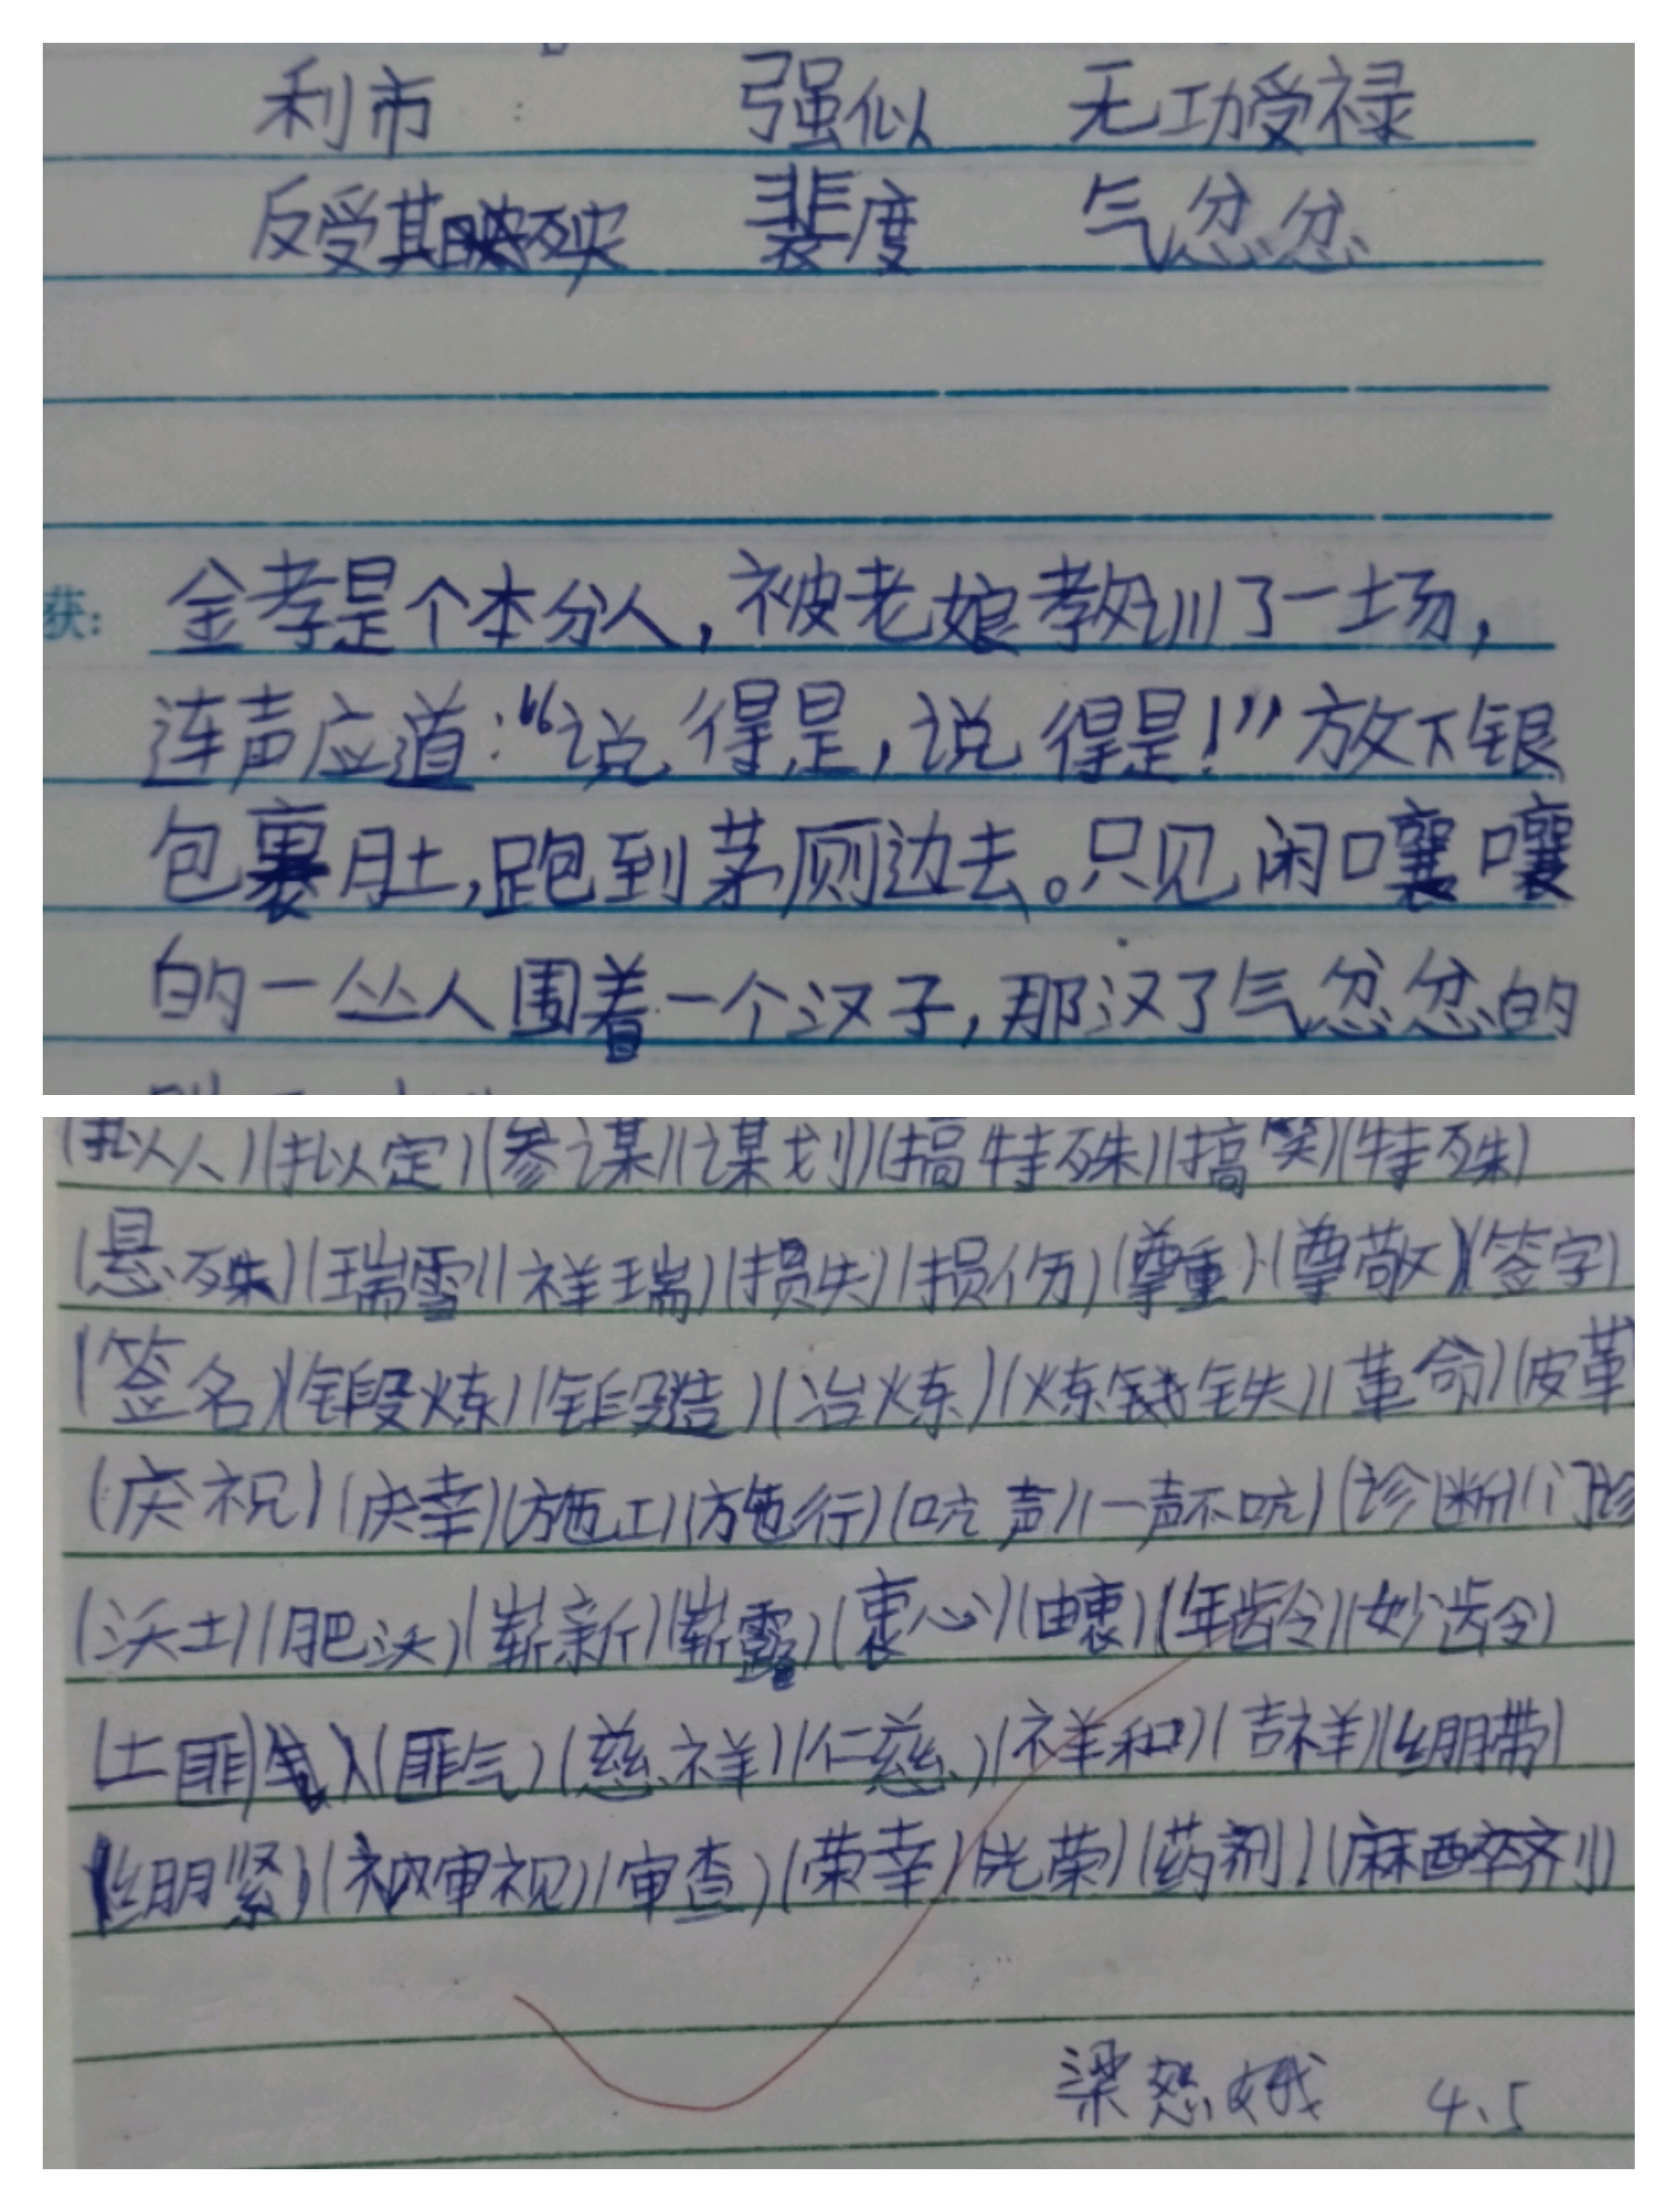 利市 强似 无功受禄
反受其殃 裴度 气忿忿
获: 金孝是个本分人,被老娘教训了一场,
连声应道:“说得是,说得是!”放下银
包裹肚,跑到茅厕边去。只见闹嚷嚷
的一丛人围着一个汉子,那汉了气忿忿的
(拟人)(拟定)(参谋)(谋划)(搞特殊)(搞笑)(特殊)
(悬殊)(瑞雪)(祥瑞)(损失)(损伤)(尊重)(尊敬)(签字)
(签名)(锻炼)(锻造)(冶炼)(炼钱铁)(革命)(皮革
(庆祝)(庆幸)(施工)(施行)(吭声)(一声不吭)(诊断)(门诊
(沃土)(肥沃)(崭新)(崭露)(衷心)(由衷)(年龄)(妙龄)
(土匪)(匪气)(慈祥)(仁慈)(祥和)(吉祥)(绷带)
(绷紧)(审视)(审查)(荣幸)(光荣)(药剂)(麻醉剂)
梁 4.5